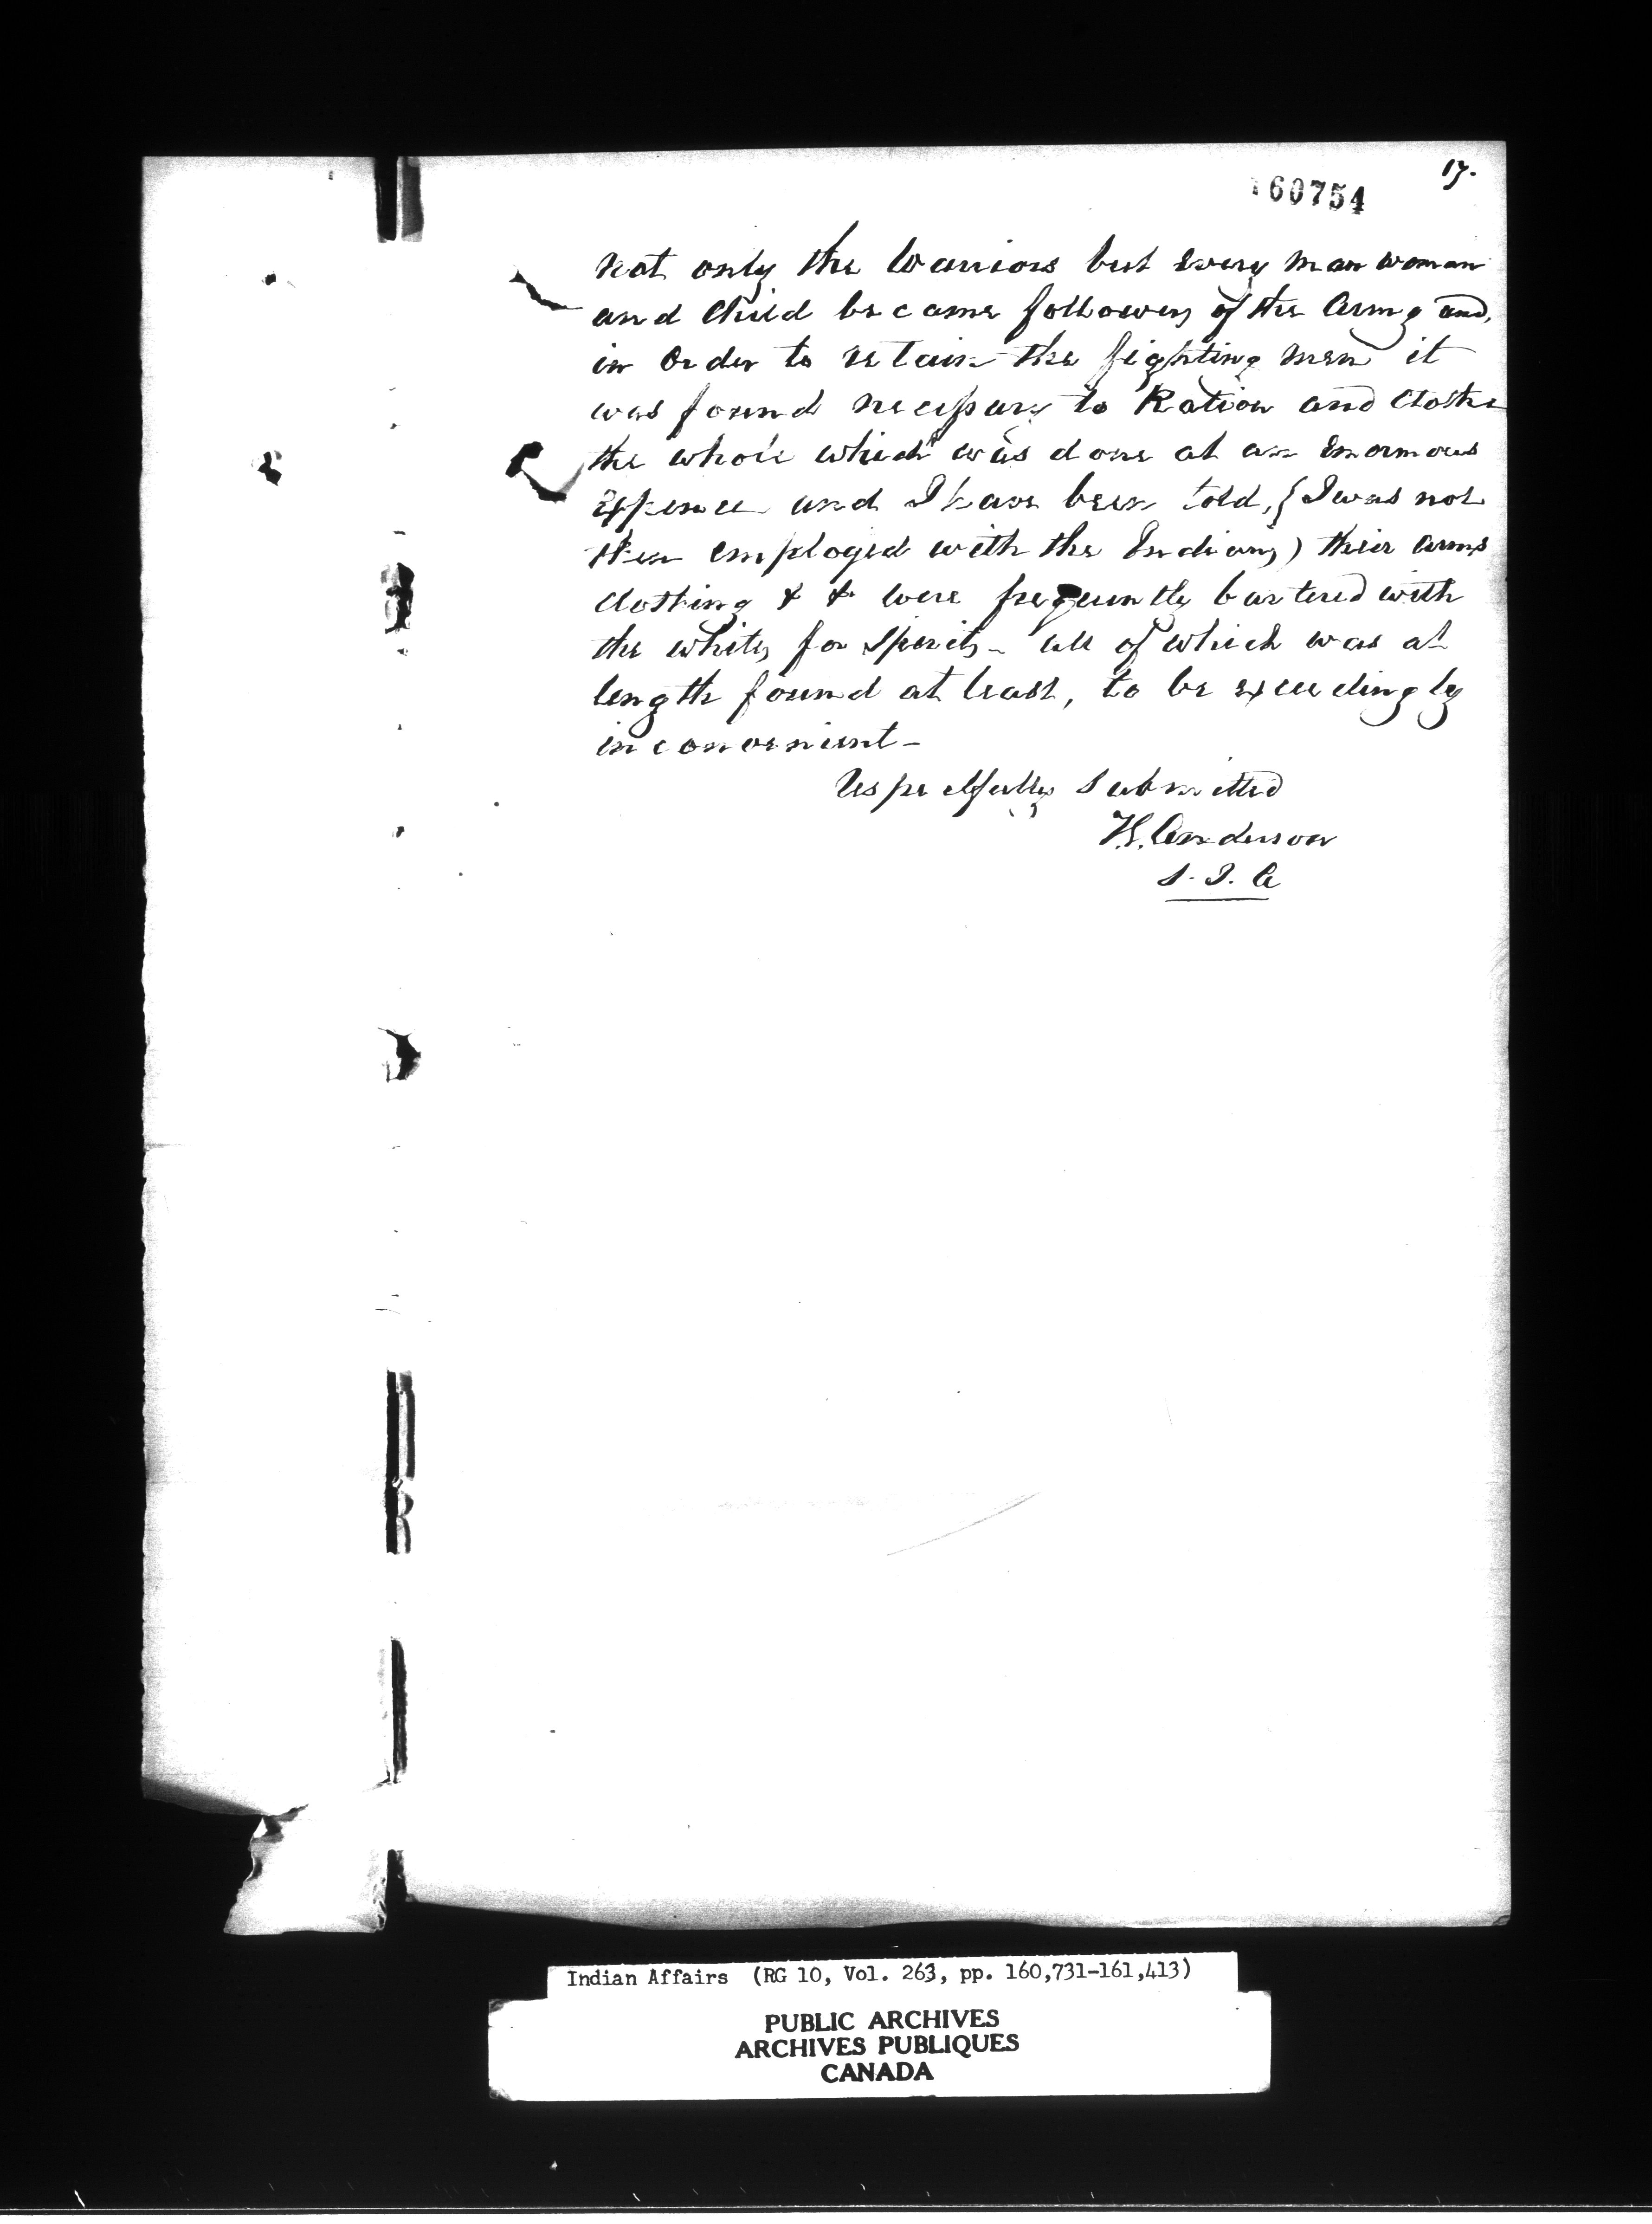 17.
160754
not only the Warriors but every man woman
and Child became followers of the Army and,
in Order to retain the fighting men it
was found necessary to Ration and Clothe
the whole which was done at an Enormous
Expence and I have been told, (I was not
then employed with the Indians) their arms
Clothing & & were frequently bartered with
the whites for Spirits - all of which was at
length found at least, to be exceedingly
inconvenient -
Respectfully Submitted
T.G. Anderson
S. I. A
Indian Affairs (RG 10, Vol. 263, pp. 160,731-161,413)
PUBLIC ARCHIVES
ARCHIVES PUBLIQUES
CANADA